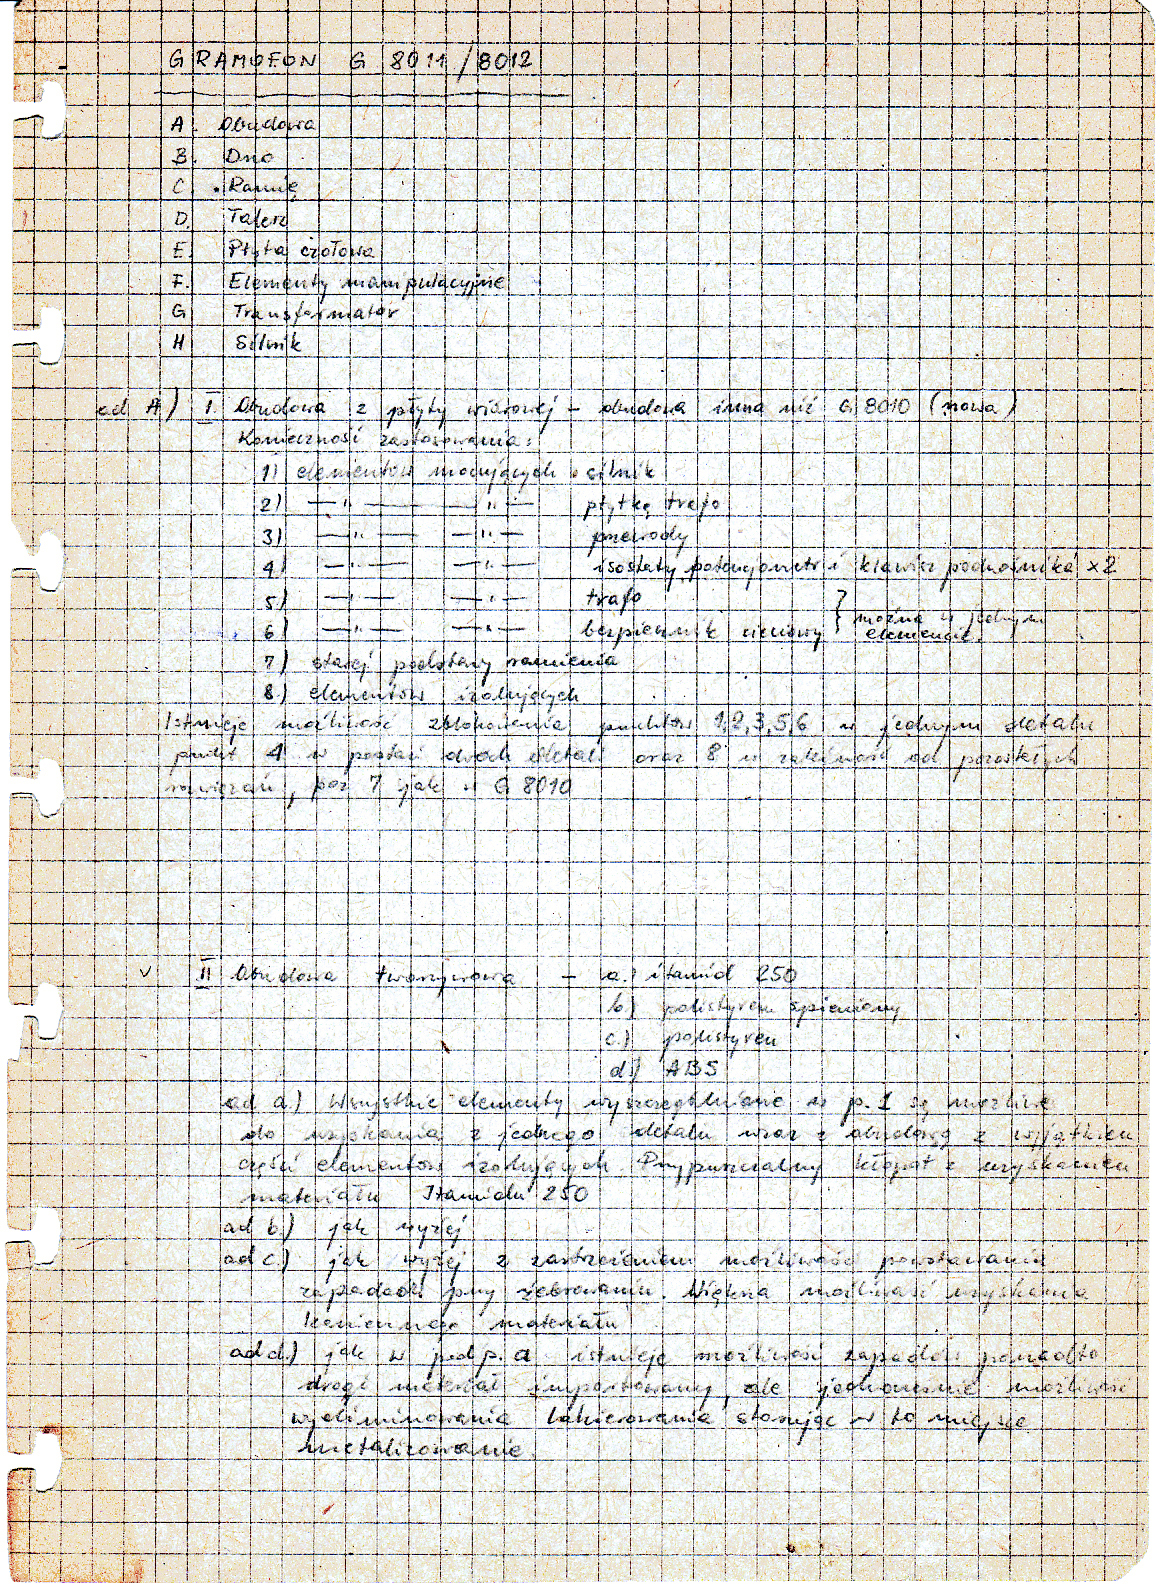 GRAMOFON G 8011/8012
A. Obudowa
B. Dno
C. Ramię
D. Talerz
E. Płyta czołowa
F. Elementy manipulacyjne
G Transformator
H Silnik
ad A) I. Obudowa z płyty wiórowej – obudowa inna niż G 8010 (nowa)
Konieczność zastosowania:
1) elementów mocujących silnik
2) —"— —"— płytkę trafo
3) —"— —"— przewody
4) —"— —"— isostaty, potencjometr i klawisz podnośnika x2
5) —"— —"— trafo
6) —"— —"— bezpiecznik sieciowy } można w jednym elemencie.
7) starej podstawy ramienia
8) elementów izolujących
Istnieje możliwość zblokowania punktów 1,2,3,5,6 w jednym detalu
punkt 4 w postaci dwóch detali oraz 8 w zależności od pozostałych
rozwiązań, poz 7 jak w G 8010
v II Obudowa tworzywowa – a.) itamid 250
b.) polistyren spieniony
c.) polistyren
d.) ABS
ad a.) Wszystkie elementy wyszczególnione w p. 1 są możliwe
do uzyskania z jednego detalu wraz z obudową z wyjątkiem
części elementów izolujących. Przypuszczalny kłopot z uzyskaniem
materiału Itamidu 250
ad b.) jak wyżej
ad c.) jak wyżej z zastrzeżeniem możliwości powstawania
zapadów przy żebrowaniu. Większa możliwość uzyskania
materiału
ad d.) jak w pod p. a istnieje możliwość zapadów ponadto
drogi materiał importowany, ale jednocześnie możliwość
wyeliminowania lakierowania stosując w to miejsce
metalizowanie.